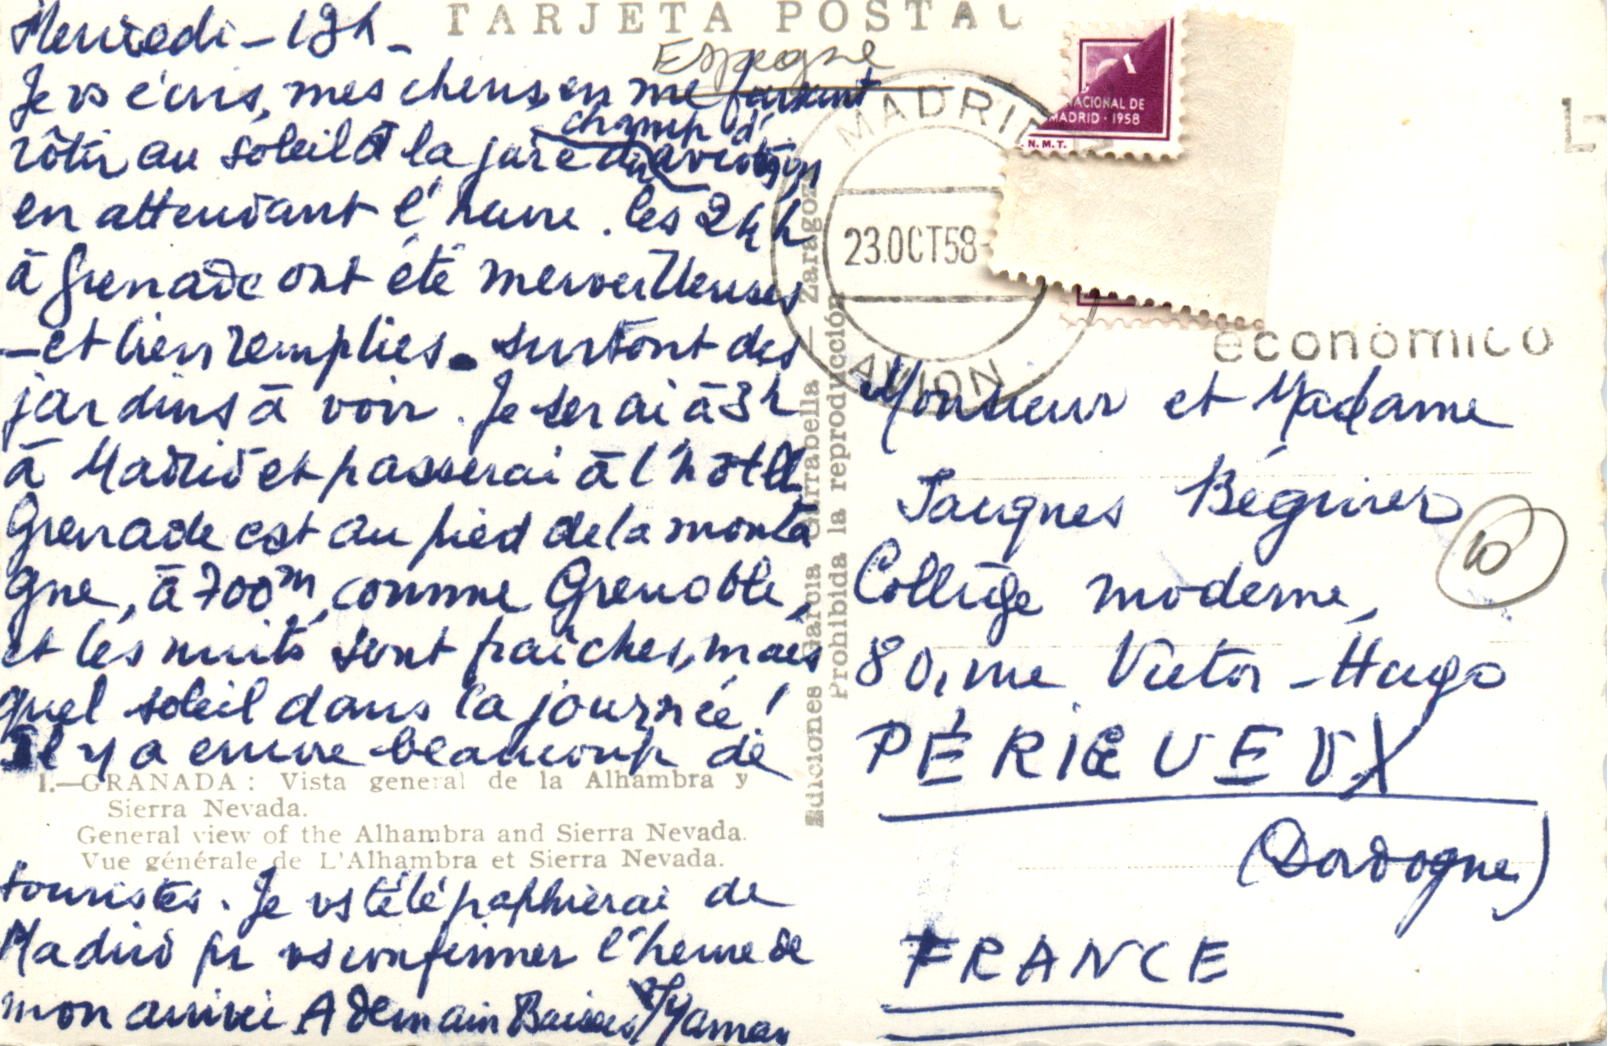 TARJETA POSTAL
Espagne
Mercredi - 13h -
Je vs écris, mes chers, en me faisant
rôtir au soleil à la gare du champ d'
aviation
en attendant l'heure. Les 24h
à Grenade ont été merveilleuses
- et bien remplies. surtout des
jardins à voir. Je serai à 3h
à Madrid et passerai à l'hôtel
Grenade est au pied de la monta
gne, à 700m, comme Grenoble,
et les nuits sont fraîches, mais
quel soleil dans la journée !
Il y a encore beaucoup de
1.—GRANADA : Vista general de la Alhambra y
Sierra Nevada.
General view of the Alhambra and Sierra Nevada.
Vue générale de L'Alhambra et Sierra Nevada.
touristes. Je vs télégraphierai de
Madrid pr vs confirmer l'heure de
mon arrivée A demain Baisers
Ediciones García Garrabella — Zaragoza
Prohibida la reproducción
MADRID
23.OCT58
AVION
NACIONAL DE
MADRID · 1958
N.M.T.
económico
Monsieur et Madame
Jacques Béguier
Collège moderne,
80, rue Victor-Hugo
PÉRIGUEUX
(Dordogne)
FRANCE
10